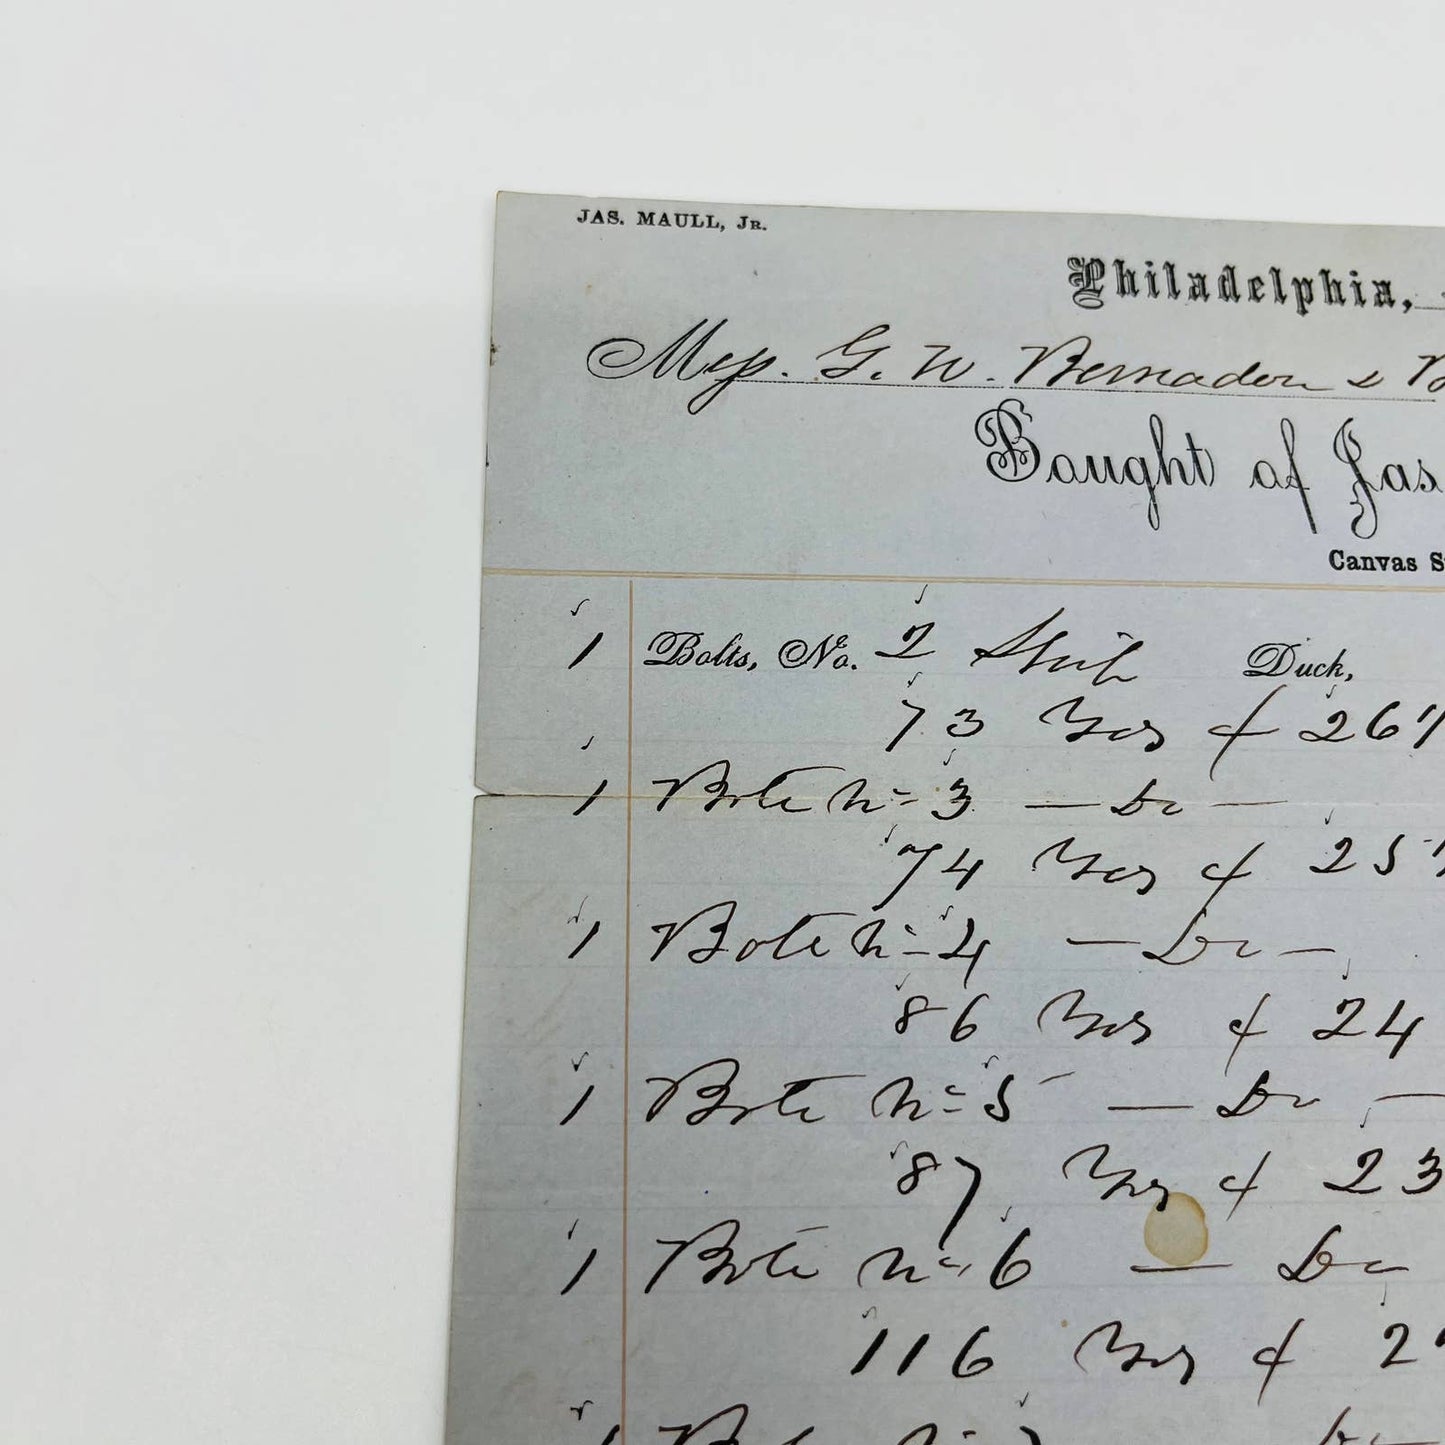 JAS. MAULL, JR.
Philadelphia,
Mess. G. W. Bernadou & B
Bought of Jas
Canvas S
1 Bolts, No. 2 Ship Duck,
73 Yds @ 26 1/
1 Bolt No 3 — Do —
74 Yds @ 25 1/
1 Bolt No 4 — Do —
86 Yds @ 24
1 Bolt No 5 — Do —
87 Yds @ 23
1 Bolt No 6 — Do
116 Yds @ 2
1 Bolt No 7 Do